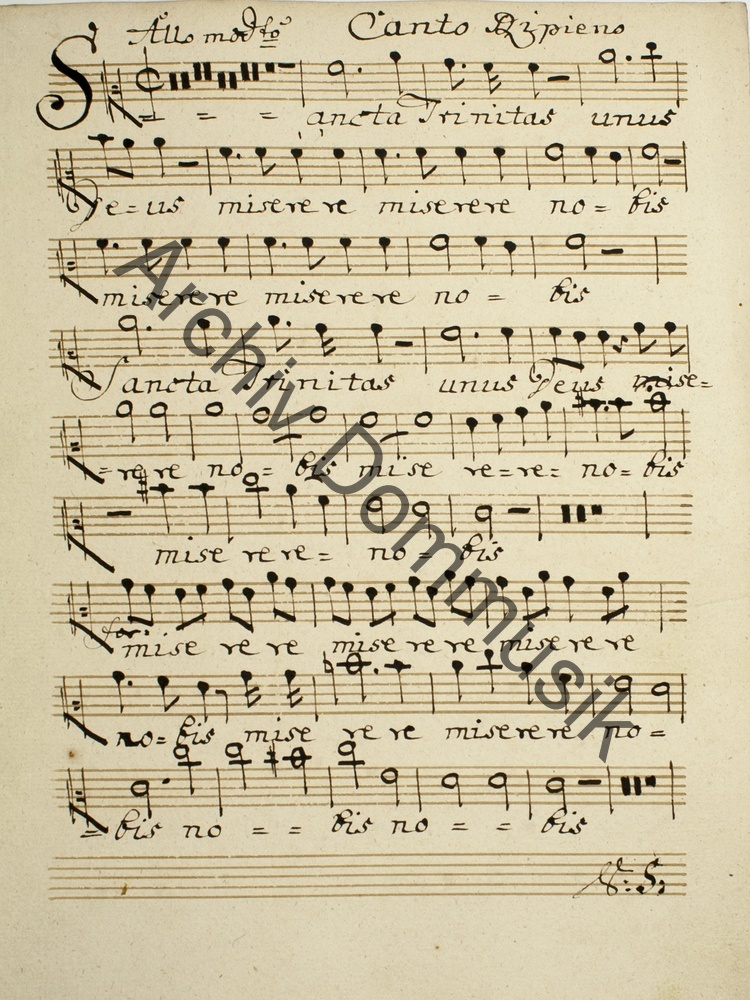 S All.o mod.to Canto Ripieno
= = = ancta Trinitas unus
De = us miserere miserere no = bis
miserere miserere no = bis
Sancta Trinitas unus Deus mise =
= rere no = bis mise re = re = no = bis
mise re re = no = bis
for: mise re re mise re re mise re re
no = bis mise re re miserere no =
= bis no = = bis no = = bis
V: S:
Archiv Dommusik